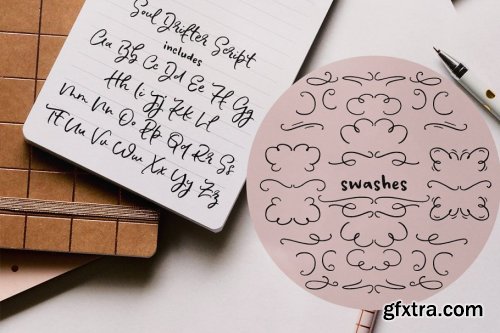 Soul Drifter Script
includes
Aa Bb Cc Dd Ee Ff Gg
Hh Ii Jj Kk Ll
Mm Nn Oo Pp Qq Rr Ss
Tt Uu Vv Ww Xx Yy Zz
swashes
gfxtra.com